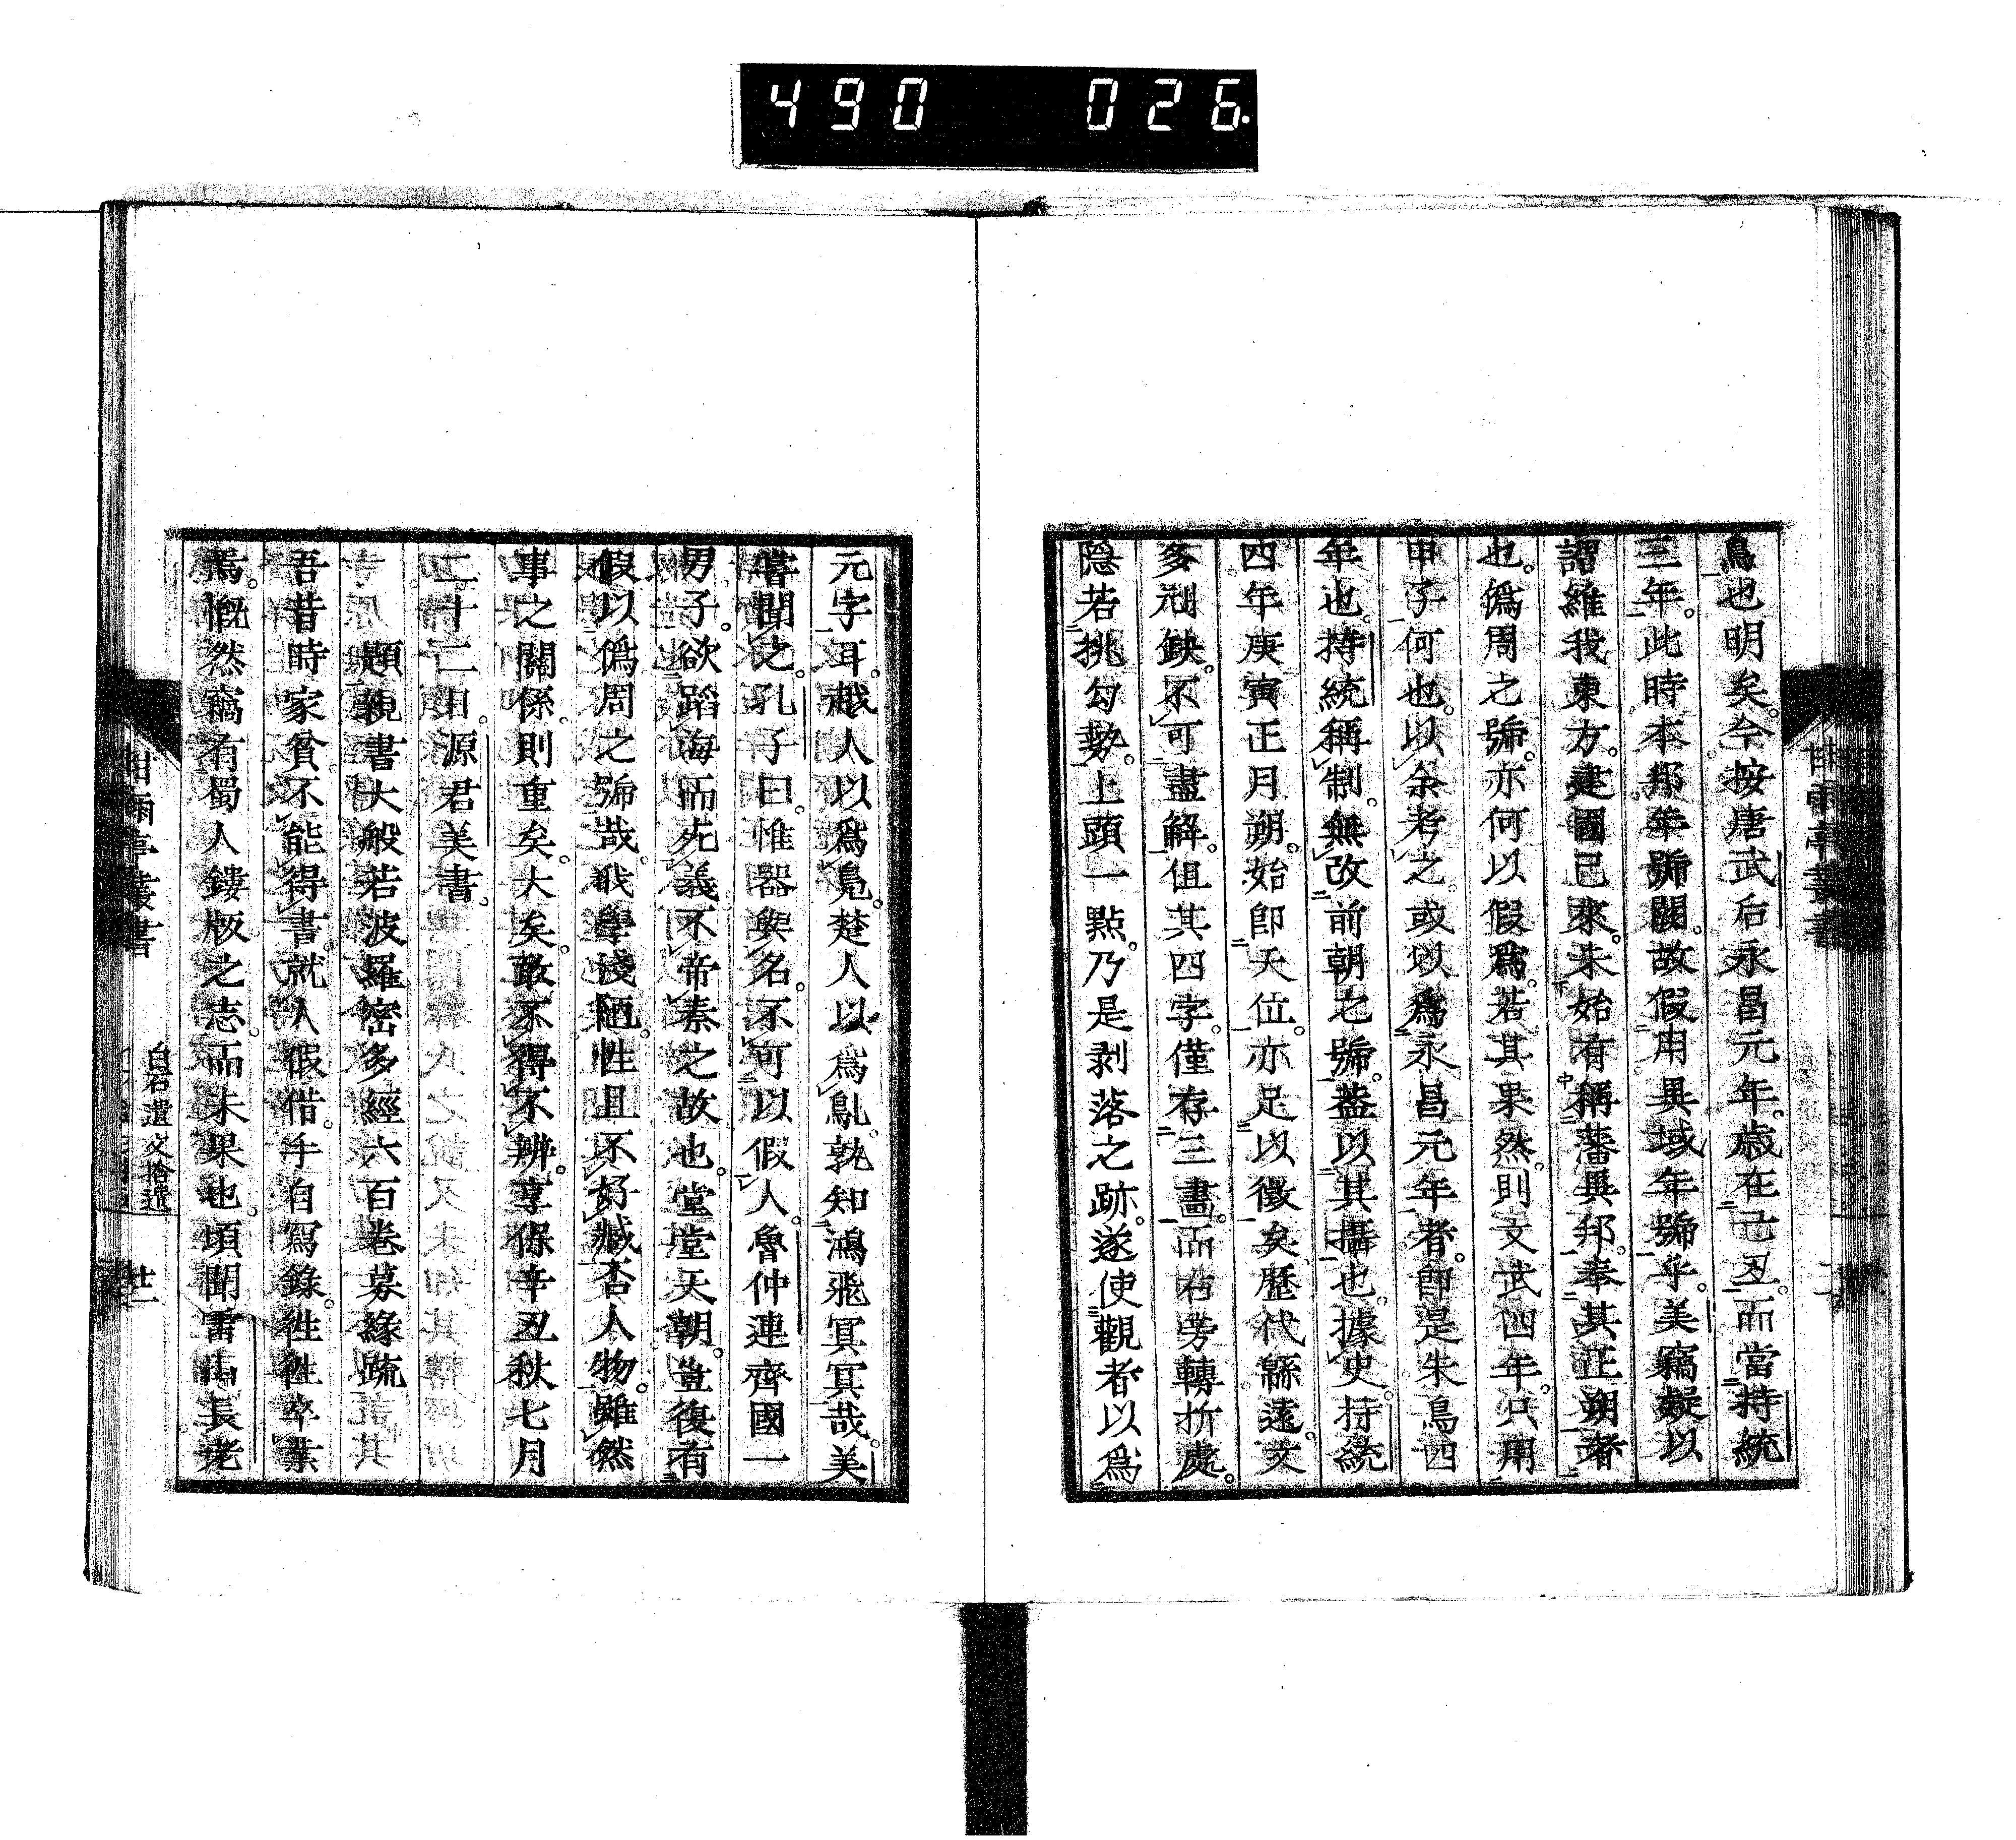 490 026.
鳥也明矣。今按唐武后永昌元年。歳在己丑。而當持統
三年。此時本邦年號闕。故假用異域年號乎。美竊疑以
謂維我東方。建國已來。未始有稱藩異邦。奉其正朔者
也。僞周之號。亦何以假爲。若其果然。則文武四年。只用
甲子何也。以余考之。或以爲永昌元年者。卽是朱鳥四
年也。持統稱制。無改前朝之號。蓋以其攝也。據史。持統
四年庚寅正月朔。始卽天位。亦足以徵矣。歷代緜遠。文
多刓缺。不可盡解。但其四字。僅存三畫。而右旁轉折處。
隱若挑勾勢。上頭一點。乃是剥落之跡。遂使觀者以爲
甘雨亭叢書
元字耳。越人以爲鳧。楚人以爲鳦。孰知鴻飛冥冥哉。美
嘗聞之。孔子曰。惟器與名。不可以假人。魯仲連齊國一
男子。欲蹈海而死。義不帝秦之故也。堂堂天朝。豈復有
假以僞周之號哉。我學淺陋。性且不好臧否人物。雖然
事之關係。則重矣。大矣。敢不得不辨。享保辛丑秋七月
二十二日。源君美書。
題親書大般若波羅密多經六百卷募緣疏
吾昔時家貧。不能得書。就人假借。手自寫錄。徃徃卒業
焉。慨然竊有蜀人鏤版之志。而未果也。頃聞雷山長老
甘雨亭叢書
白石遺文拾遺
廿一